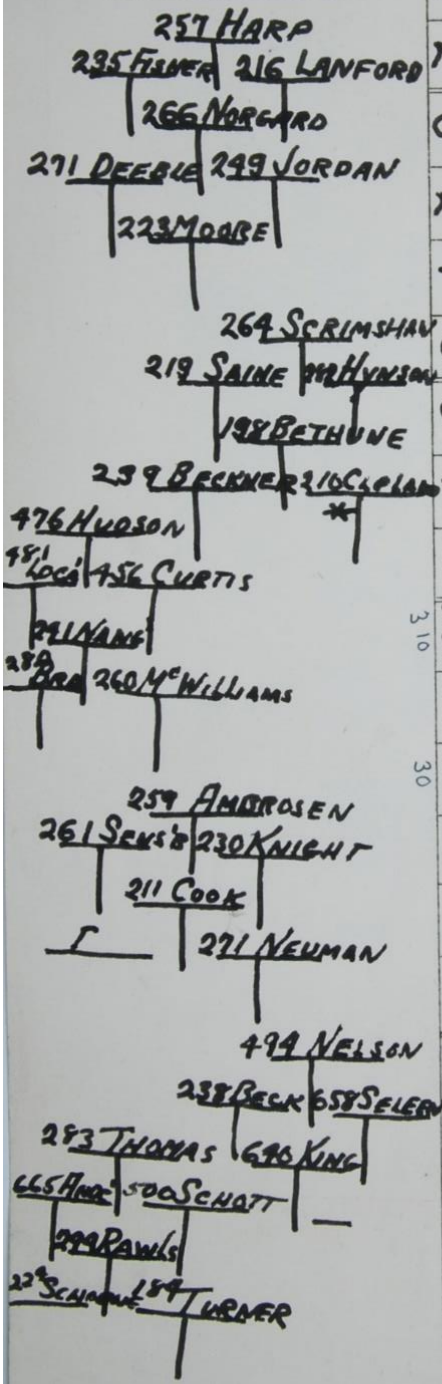 257 HARP
235 FISHER 216 LANFORD
266 NORGARD
271 DEEBLE 249 JORDAN
223 MOORE
264 SCRIMSHAW
219 SAINE HYNSON
198 BETHUNE
239 BECKNER 210
476 HUDSON
481 LOGA' 456 CURTIS
291 NANG'
BRA 260 McWILLIAMS
310
30
259 AMBROSEN
261 SENS'B 230 KNIGHT
211 COOK
I 271 NEUMAN
494 NELSON
238 BECK 658
283 THOMAS 690 KING
665 500 SCHOTT
299 RAWLS
189 TURNER